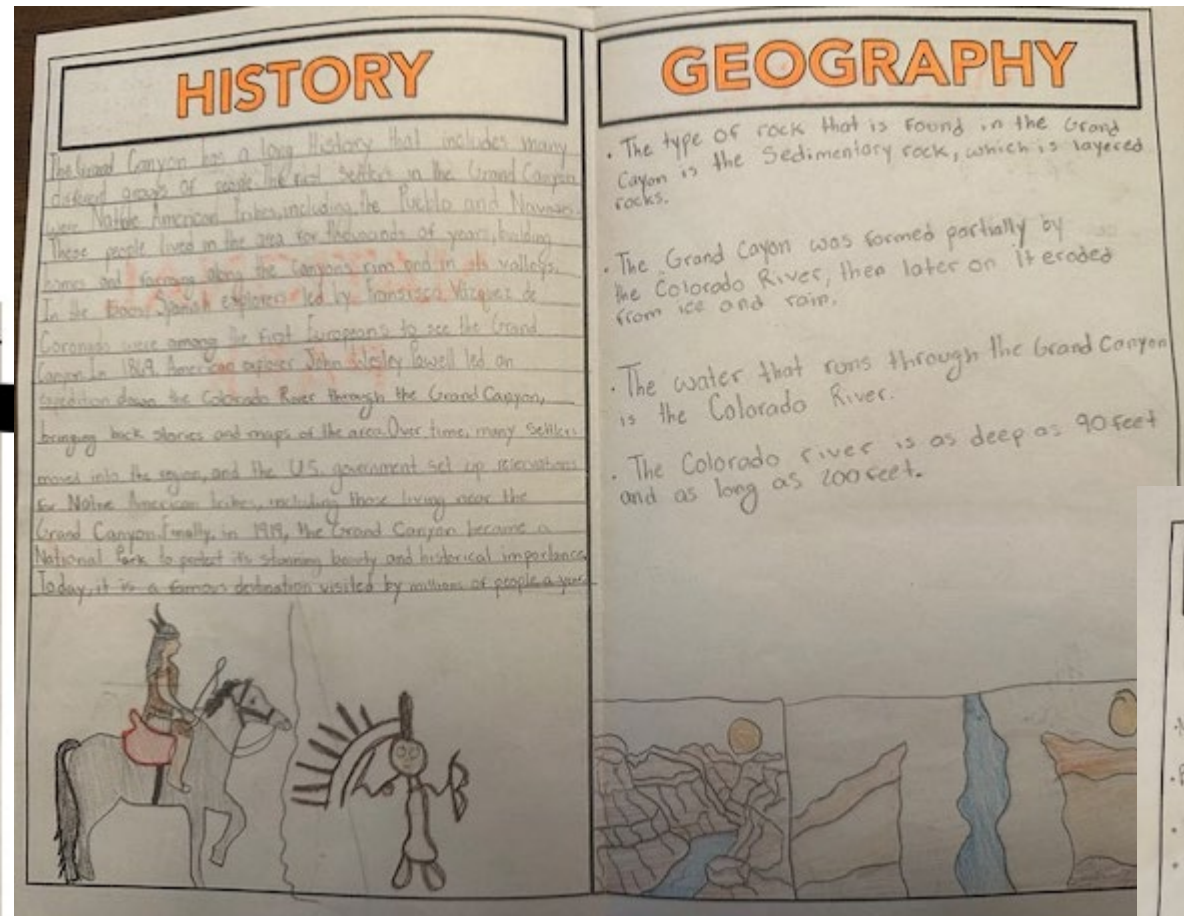 HISTORY
The Grand Canyon has a long History that includes many
different groups of people. The first settlers in the Grand Canyon
were Native American tribes, including the Pueblo and Navajos.
These people lived in the area for thousands of years, building
homes and farming along the canyons rim and in its valleys.
In the Spanish explorers led by Francisco Vázquez de
Coronado were among the first Europeans to see the Grand
Canyon. In 1869, American explorer John Wesley Powell led an
expedition down the Colorado River through the Grand Canyon,
bringing back stories and maps of the area. Over time, many settlers
moved into the region, and the U.S. government set up reservations
for Native American tribes, including those living near the
Grand Canyon. Finally, in 1919, the Grand Canyon became a
National Park to protect its stunning beauty and historical importance.
Today, it is a famous destination visited by millions of people a year.
GEOGRAPHY
· The type of rock that is found in the Grand
Cayon is the Sedimentory rock, which is layered
rocks.
· The Grand Cayon was formed partially by
the Colorado River, then later on it eroded
from ice and rain.
· The water that runs through the Grand Canyon
is the Colorado River.
· The Colorado river is as deep as 90 feet
and as long as 200 feet.